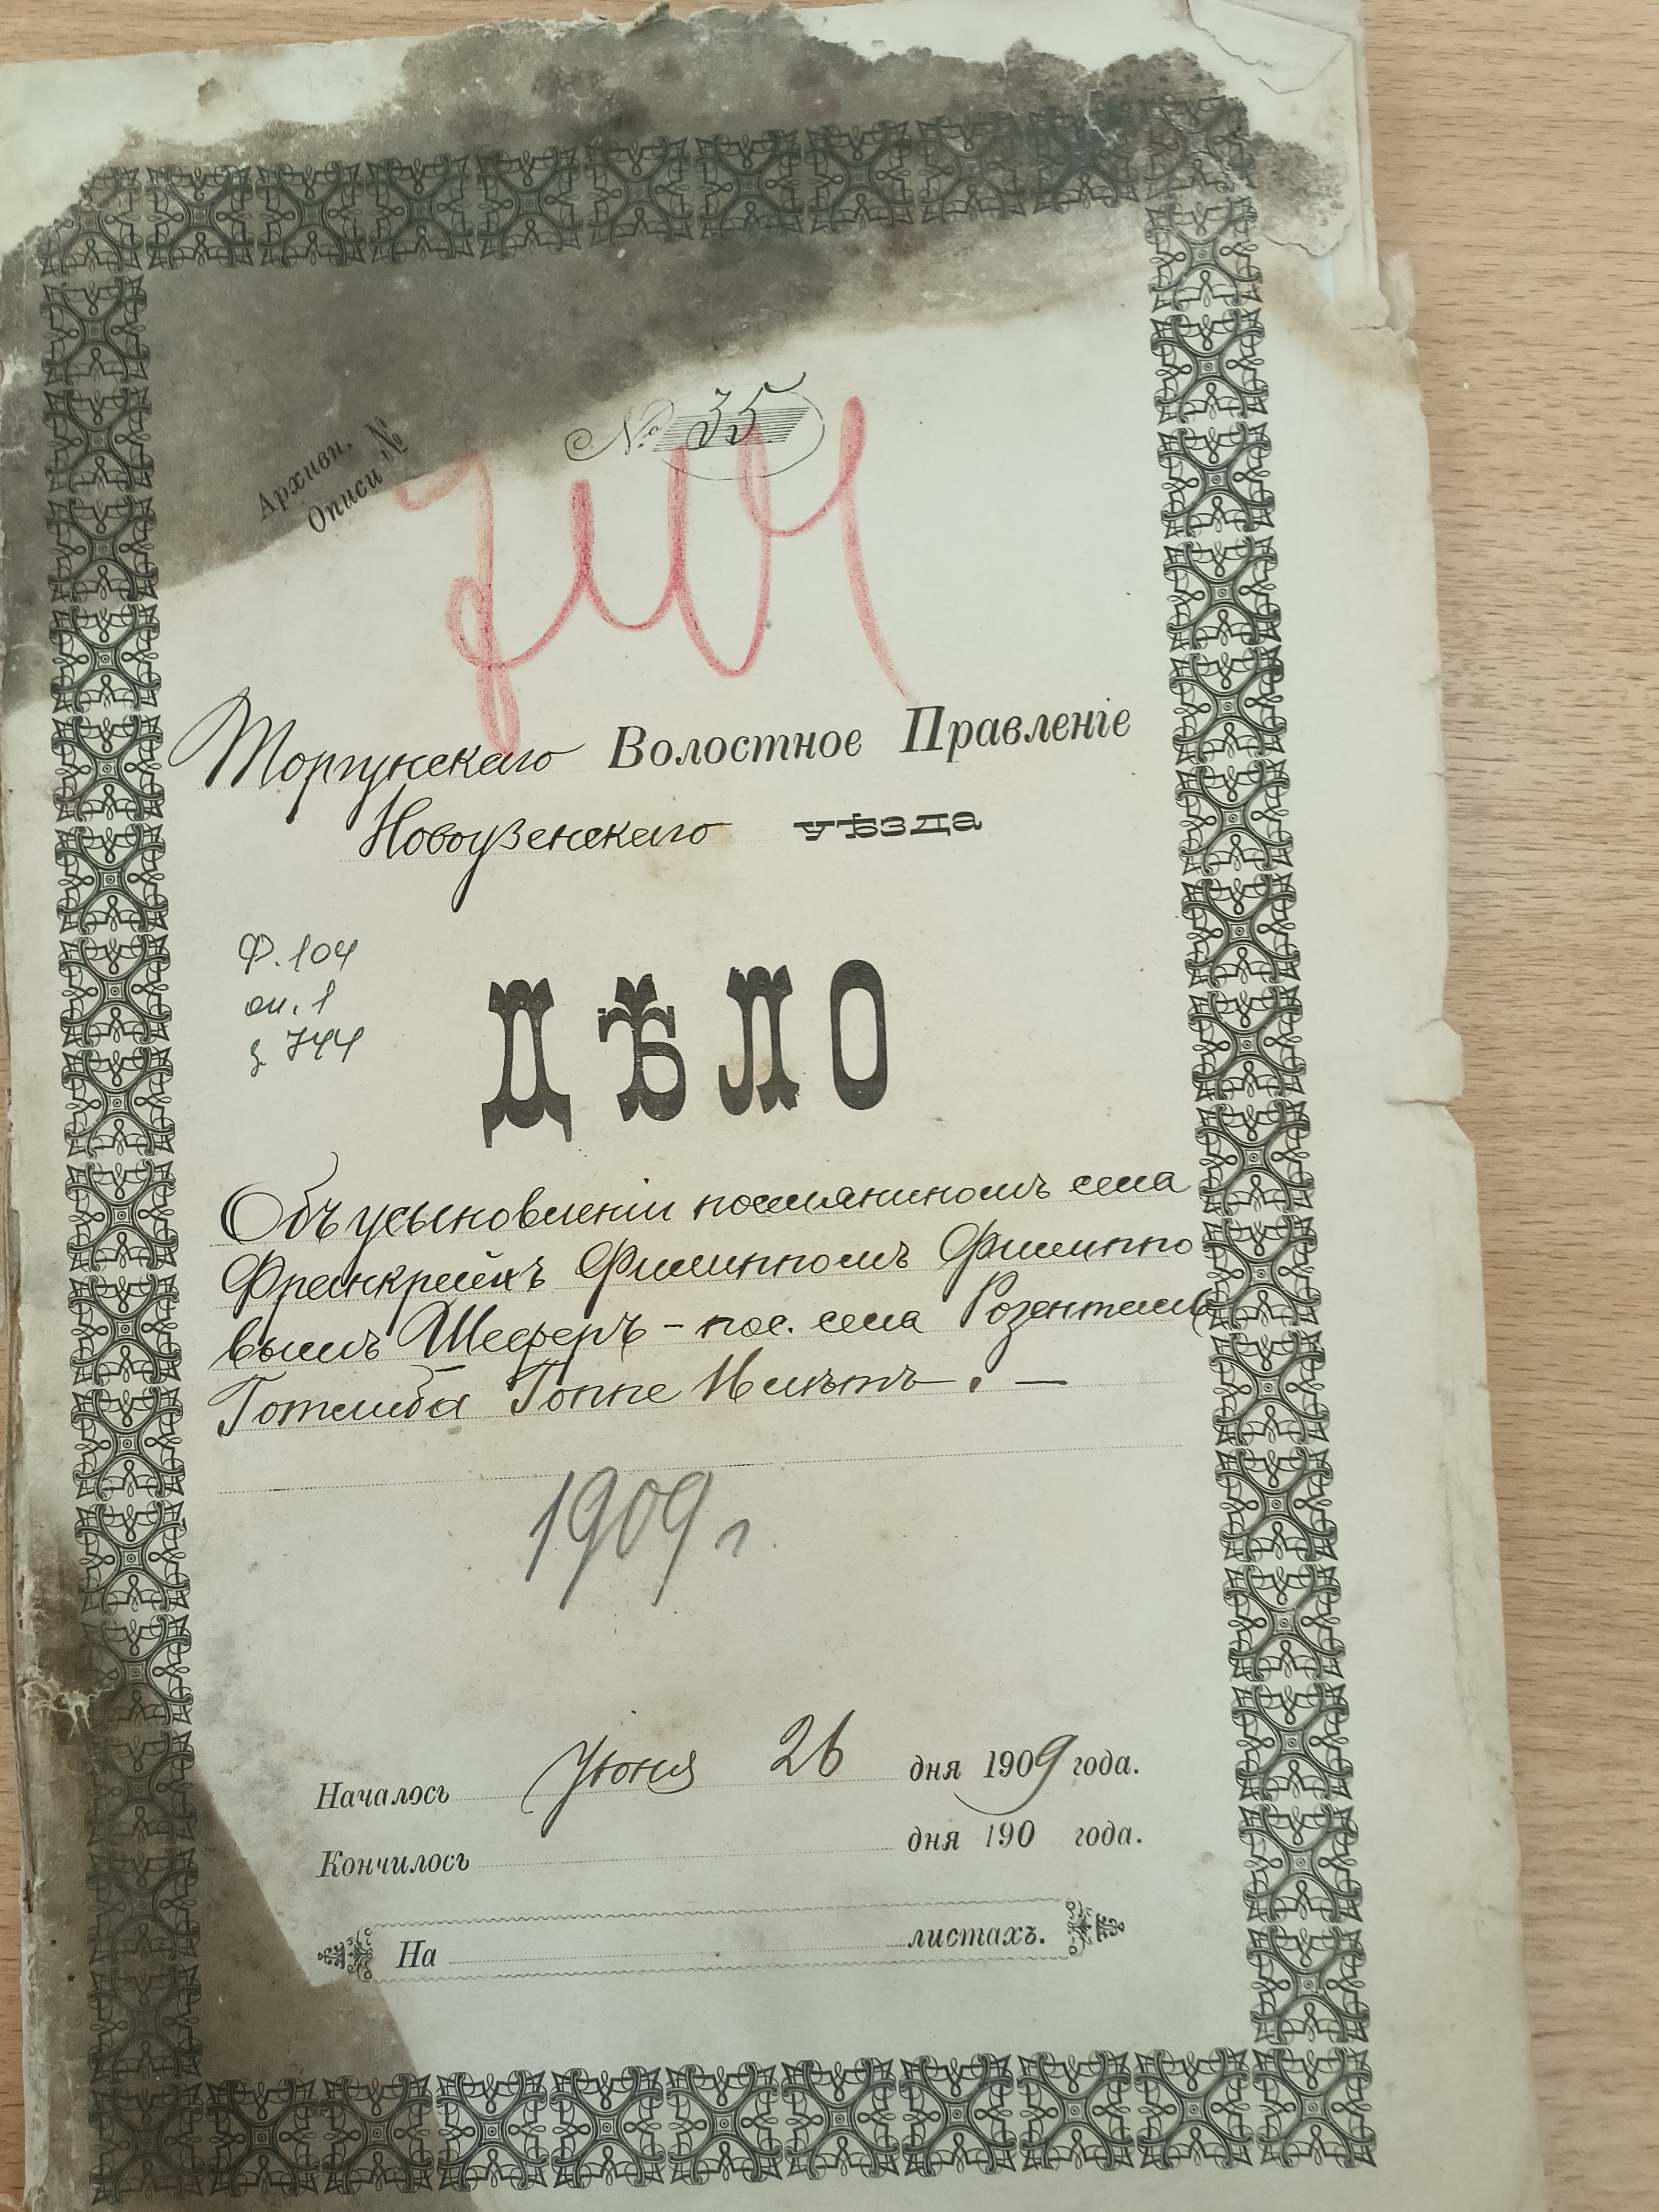 № 35
Архивн.
Описи №
Торгунскаго Волостное Правленіе
Новоузенскаго уѣзда
Ф. 104
оп. 1
д 744
ДѢЛО
Объ усыновленіи поселяниномъ села
Франкрейхъ Филиппомъ Филиппо
вымъ Шеферъ - пос. села Розенталь
Готлиба Гоппе
1909 г
Началось Іюня 26 дня 1909 года.
Кончилось дня 190 года.
На листахъ.